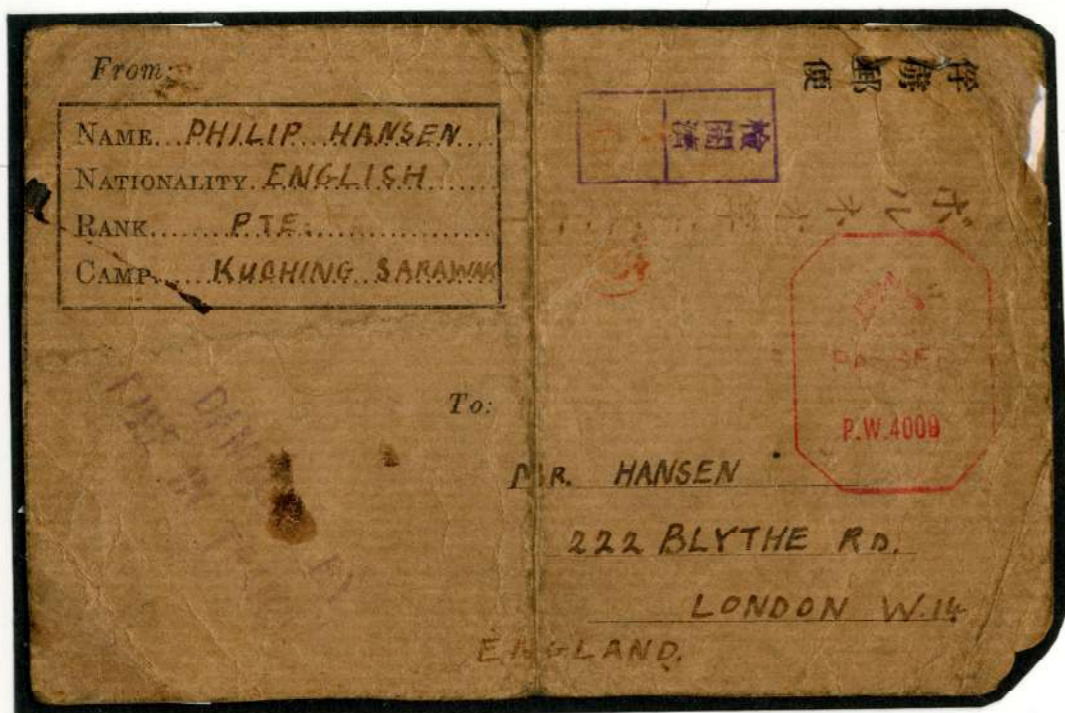 From:
NAME...PHILIP HANSEN....
NATIONALITY. ENGLISH.......
RANK........PTE:...............
CAMP.... KUCHING SARAWAK
俘虜郵便
檢閲濟
ボルネオ
P.W.4009
BY
FIRE IN
To:
MR. HANSEN
222 BLYTHE RD.
LONDON W.14
ENGLAND.